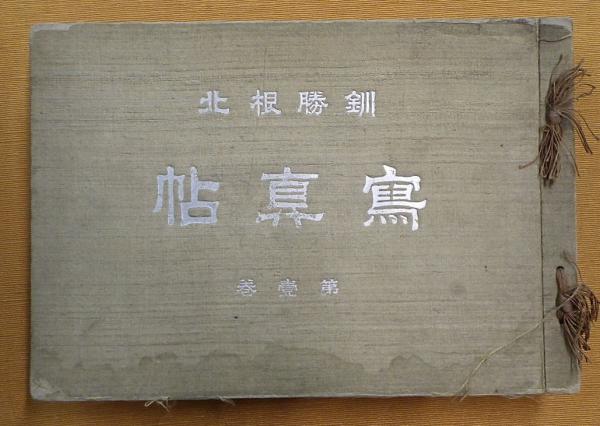 釧勝根北
寫真帖
第壹巻